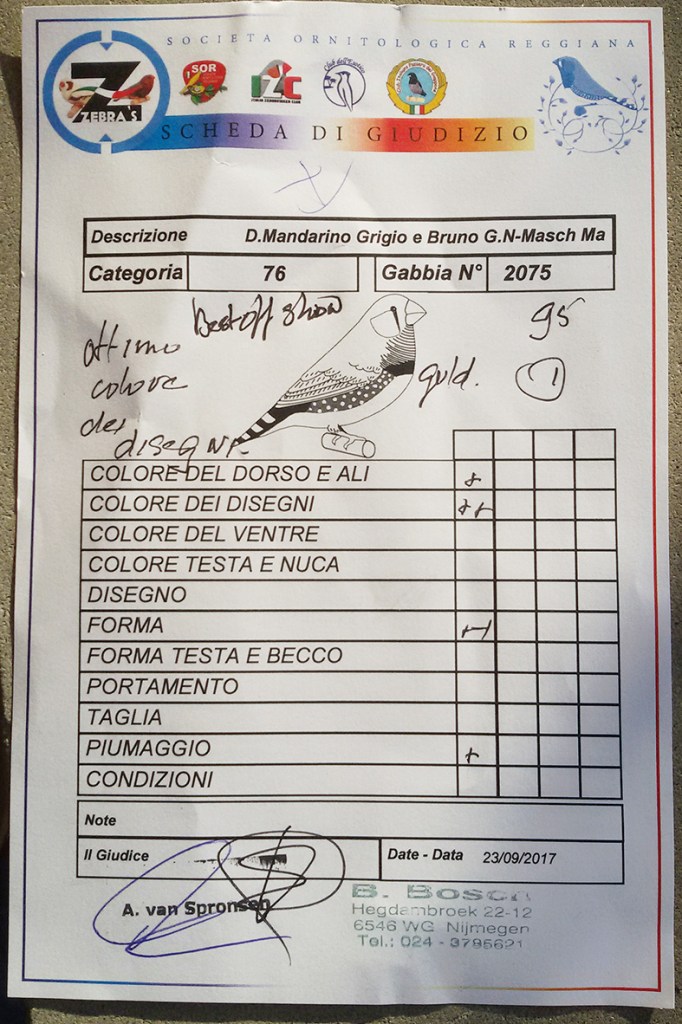 SOCIETA ORNITOLOGICA REGGIANA
Z
ZEBRA'S
SOR
IZC
SCHEDA DI GIUDIZIO
Descrizione D.Mandarino Grigio e Bruno G.N-Masch Ma
Categoria 76 Gabbia N° 2075
Best off show 95
ottimo
colore guld. 1
dei
disegni
COLORE DEL DORSO E ALI +
COLORE DEI DISEGNI ++
COLORE DEL VENTRE
COLORE TESTA E NUCA
DISEGNO
FORMA
FORMA TESTA E BECCO
PORTAMENTO
TAGLIA
PIUMAGGIO +
CONDIZIONI
Note
Il Giudice Date - Data 23/09/2017
A. van Spronsen
B. Bosch
Hegdambroek 22-12
6546 WG Nijmegen
Tel.: 024 - 3795621